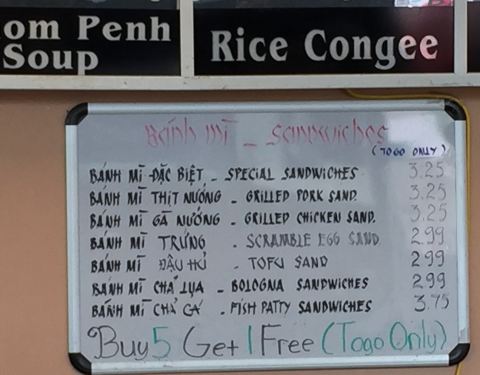 om Penh
Soup
Rice Congee
Bánh mī - Sandwiches
(TOGO ONLY)
BÁNH MĪ ĐẶC BIỆT - SPECIAL SANDWICHES 3.25
BÁNH MĪ THỊT NƯỚNG - GRILLED PORK SAND. 3.25
BÁNH MĪ GÀ NƯỚNG - GRILLED CHICKEN SAND. 3.25
BÁNH MĪ TRỨNG - SCRAMBLE EGG SAND 2.99
BÁNH MĪ ĐẬU HỦ - TOFU SAND 2.99
BÁNH MĪ CHẢ LỤA - BOLOGNA SANDWICHES 2.99
BÁNH MĪ CHẢ CÁ - FISH PATTY SANDWICHES 3.75
Buy 5 Get 1 Free (Togo Only)